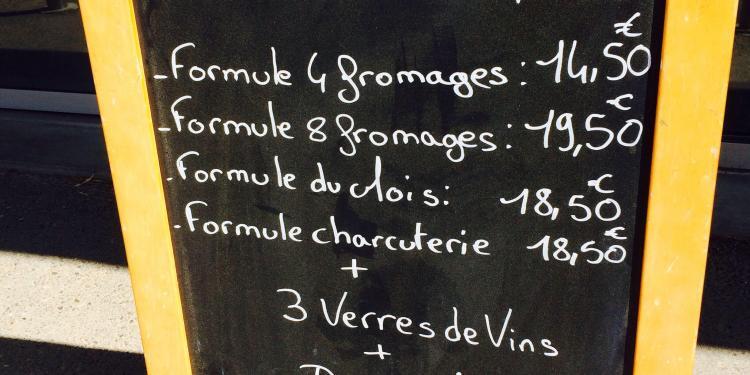 - Formule 4 fromages : 14,50 €
- Formule 8 fromages : 19,50 €
- Formule du clois : 18,50 €
- Formule charcuterie 18,50 €
+
3 Verres de Vins
+